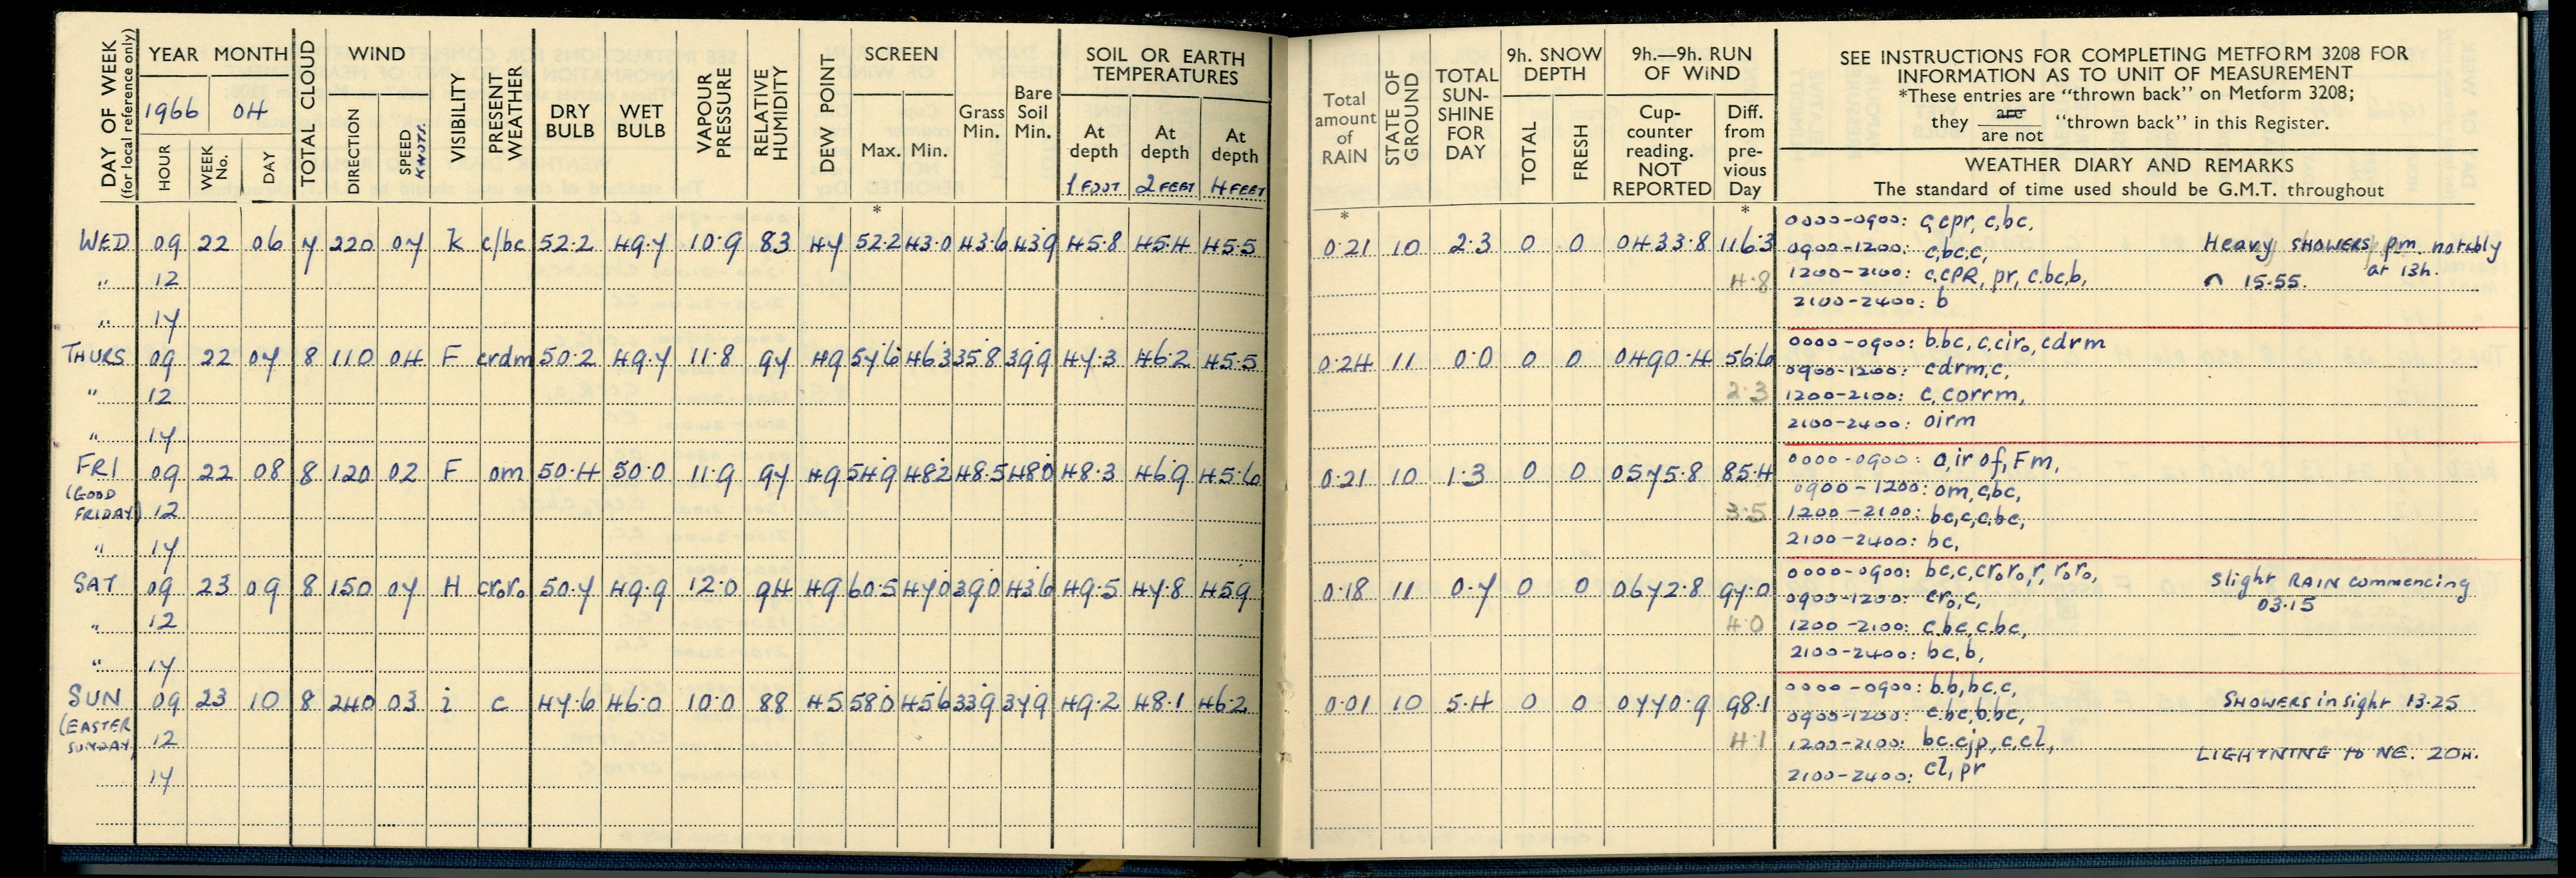 DAY OF WEEK (for local reference only) YEAR MONTH TOTAL CLOUD WIND VISIBILITY PRESENT WEATHER DRY BULB WET BULB VAPOUR PRESSURE RELATIVE HUMIDITY DEW POINT SCREEN Grass Min. Bare Soil Min. SOIL OR EARTH TEMPERATURES
1966 04
HOUR WEEK No. DAY DIRECTION SPEED KNOTS. Max. Min. At depth At depth At depth
1 FOOT 2 FEET 4 FEET
*
WED 09 22 06 7 220 07 k c/bc 52.2 49.7 10.9 83 47 52.2 43.0 43.6 43.9 45.8 45.4 45.5
" 12
" 17
THURS 09 22 07 8 110 04 F crdm 50.2 49.7 11.8 97 49 57.6 46.3 35.8 39.9 47.3 46.2 45.5
" 12
" 17
FRI 09 22 08 8 120 02 F om 50.4 50.0 11.9 97 49 54.9 48.2 48.5 48.0 48.3 46.9 45.6
(GOOD
FRIDAY) 12
" 17
SAT 09 23 09 8 150 07 H cr₀r₀ 50.7 49.9 12.0 94 49 60.5 47.0 39.0 43.6 49.5 47.8 45.9
" 12
" 17
SUN 09 23 10 8 240 03 i c 47.6 46.0 10.0 88 45 58.0 45.6 33.9 37.9 49.2 48.1 46.2
(EASTER
SUNDAY) 12
17
Total amount of RAIN STATE OF GROUND TOTAL SUN-SHINE FOR DAY 9h. SNOW DEPTH 9h.—9h. RUN OF WIND
TOTAL FRESH Cup-counter reading. NOT REPORTED Diff. from pre-vious Day
SEE INSTRUCTIONS FOR COMPLETING METFORM 3208 FOR
INFORMATION AS TO UNIT OF MEASUREMENT
*These entries are "thrown back" on Metform 3208;
they are / are not "thrown back" in this Register.
WEATHER DIARY AND REMARKS
The standard of time used should be G.M.T. throughout
* *
0.21 10 2.3 0 0 0433.8 116.3
4.8
0000-0900: c,cpr, c,bc,
0900-1200: c,bc.c, Heavy SHOWERS pm. notably
1200-2100: c,cPR, pr, c.bc,b, at 13h.
⌒ 15.55.
2100-2400: b
0.24 11 0.0 0 0 0490.4 56.6
2.3
0000-0900: b.bc, c.cir₀, cdrm
0900-1200: cdrm,c,
1200-2100: c, corrm,
2100-2400: oirm
0.21 10 1.3 0 0 0575.8 85.4
3.5
0000-0900: o,ir of, Fm,
0900-1200: om,c,bc,
1200-2100: bc,c,c,bc,
2100-2400: bc,
0.18 11 0.7 0 0 0672.8 97.0
4.0
0000-0900: bc,c,cr₀r₀,r, r₀r₀, Slight RAIN commencing
0900-1200: cr₀,c, 03.15
1200-2100: c.bc,c.bc,
2100-2400: bc,b,
0.01 10 5.4 0 0 0770.9 98.1
4.1
0000-0900: b.b,bc.c,
0900-1200: c.bc,b.bc, SHOWERS in sight 13.25
1200-2100: bc.cjp, c,cl,
LIGHTNING to NE. 20H.
2100-2400: cl,pr